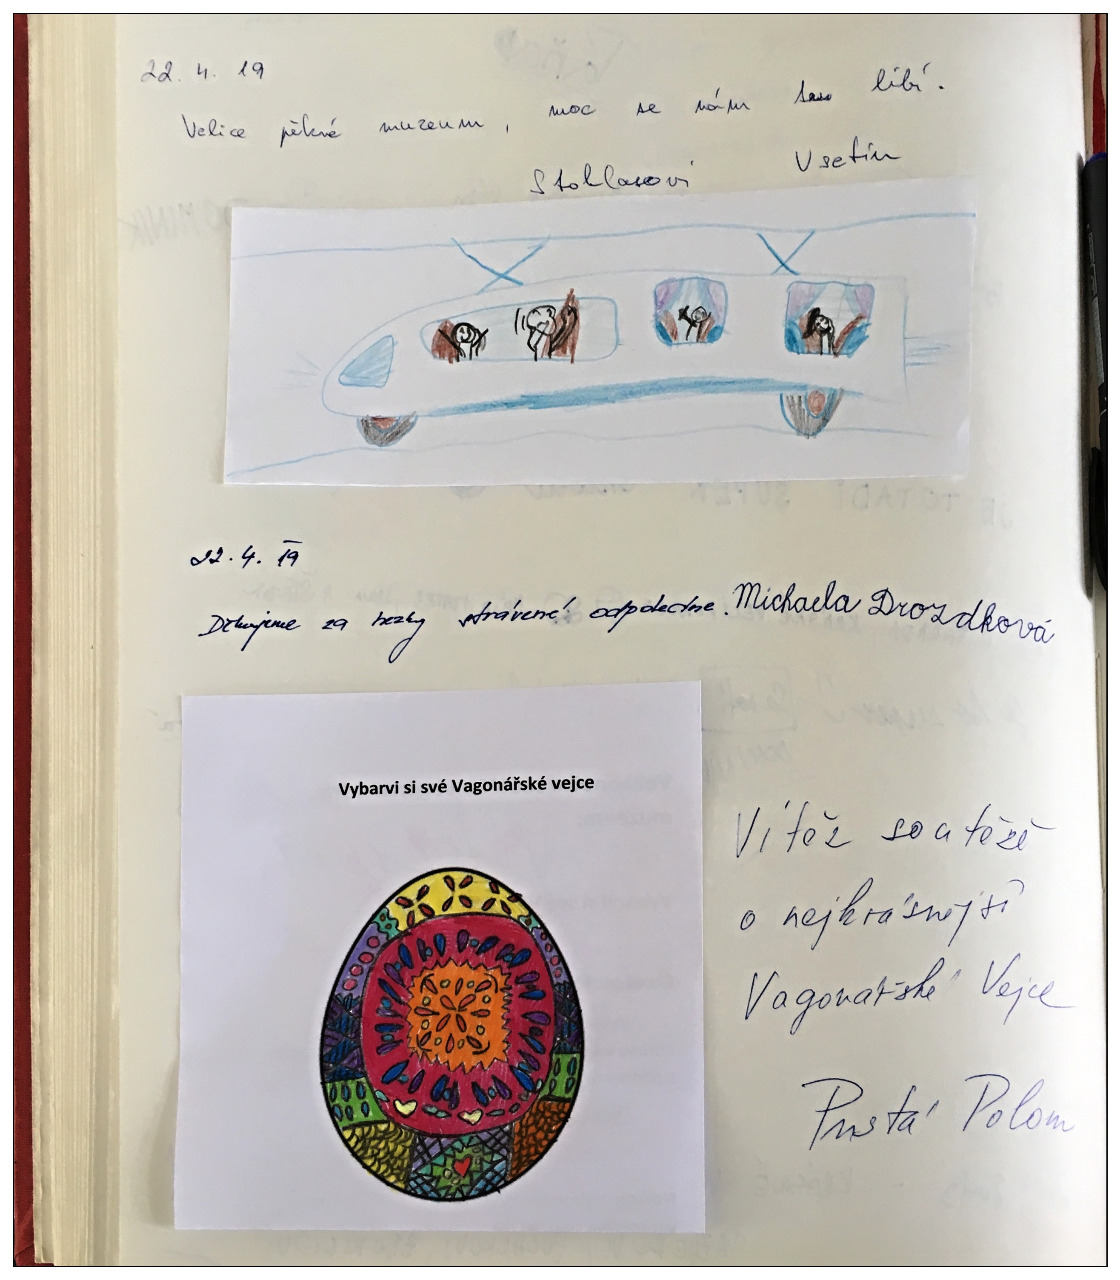 22. 4. 19
Velice pěkné muzeum, moc se nám líbí.
Vsetín
22. 4. 19
Děkujeme za hezky strávené odpoledne. Michaela Drozdková
Vybarvi si své Vagonářské vejce
Vítěz soutěžě
o nejkrásnější
Vagonářské Vejce
Pustá Polom